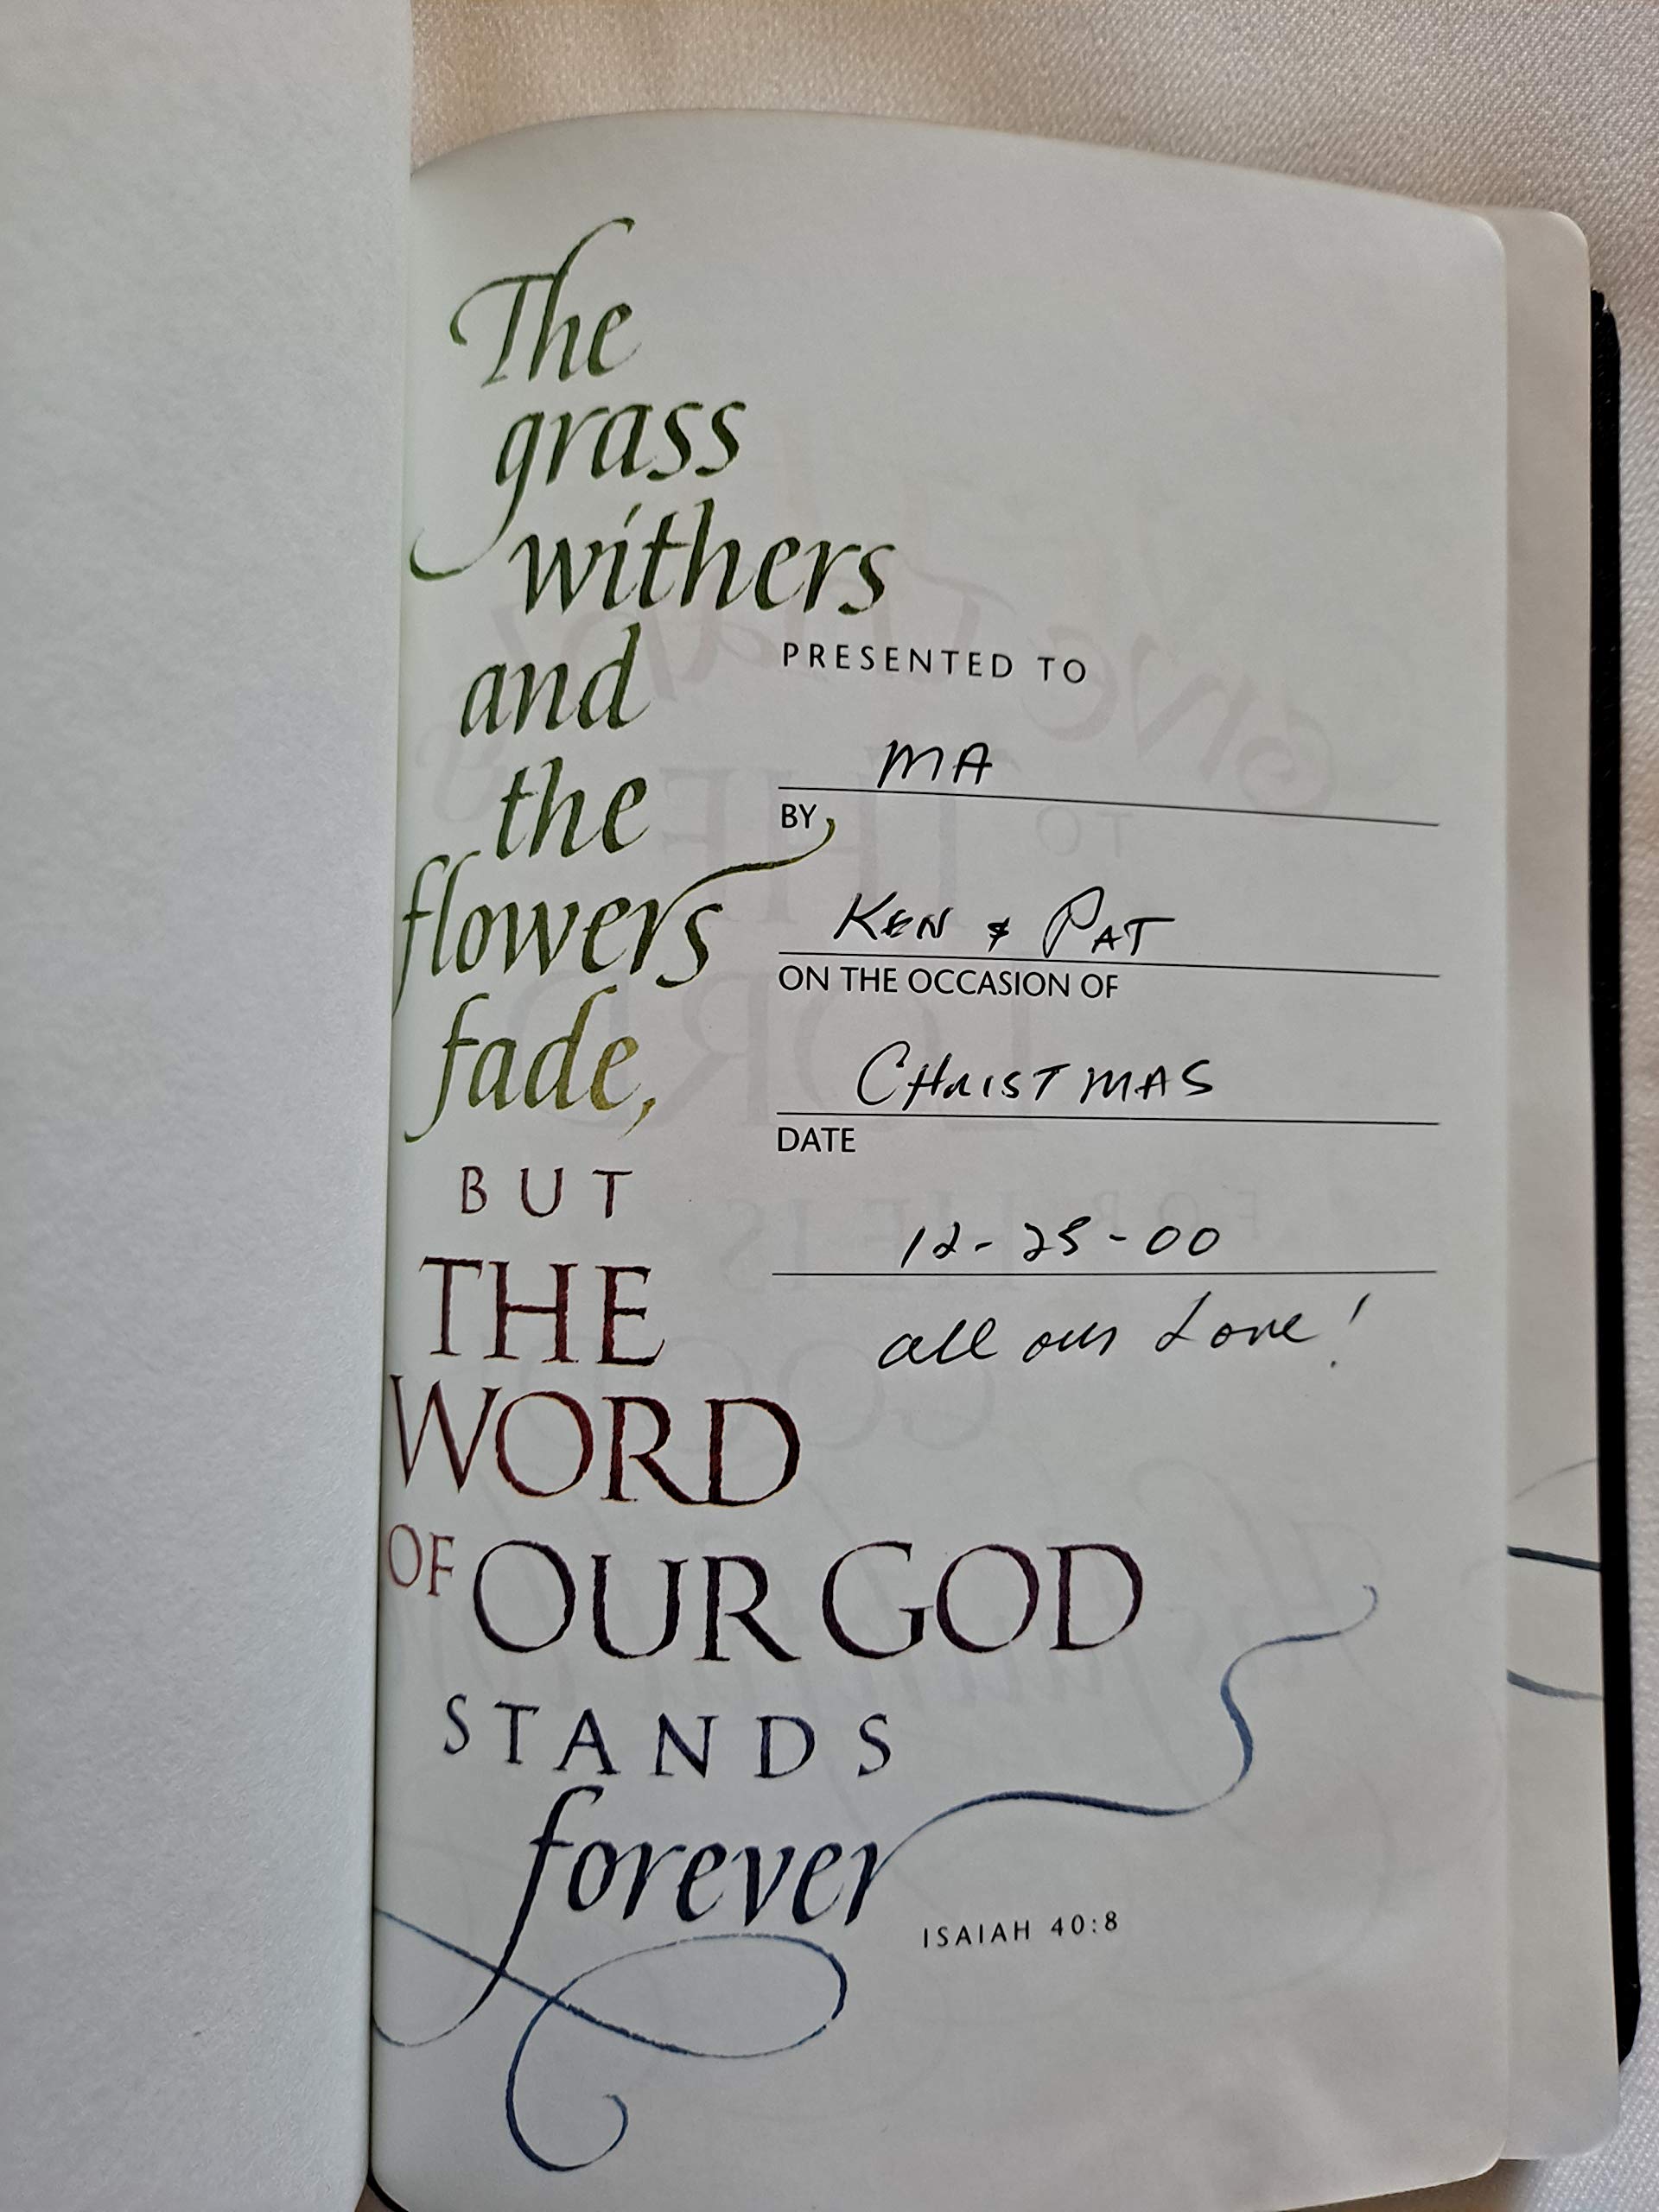 The
grass
withers
and
the
flowers
fade,
BUT
THE
WORD
OF OUR GOD
STANDS
forever
ISAIAH 40:8
PRESENTED TO
MA
BY
KEN & PAT
ON THE OCCASION OF
CHRISTMAS
DATE
12-25-00
all our Love!